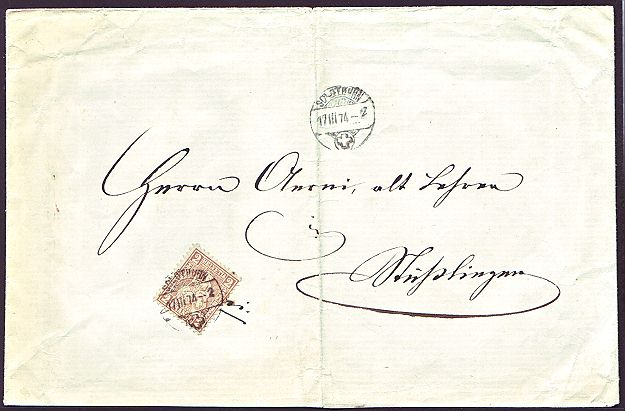 SOLOTHURN
17 III 74 – 2
Herrn Aerni, alt Lehrer
in
Stüßlingen
2 2
SOLOTHURN
17 III 74 – 2